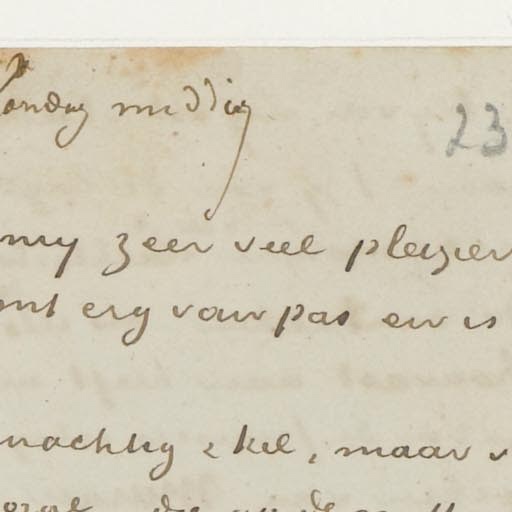 Zondag middag
23
my zeer veel pleizier
mt erg van pas en is
machtig ekel, maar v